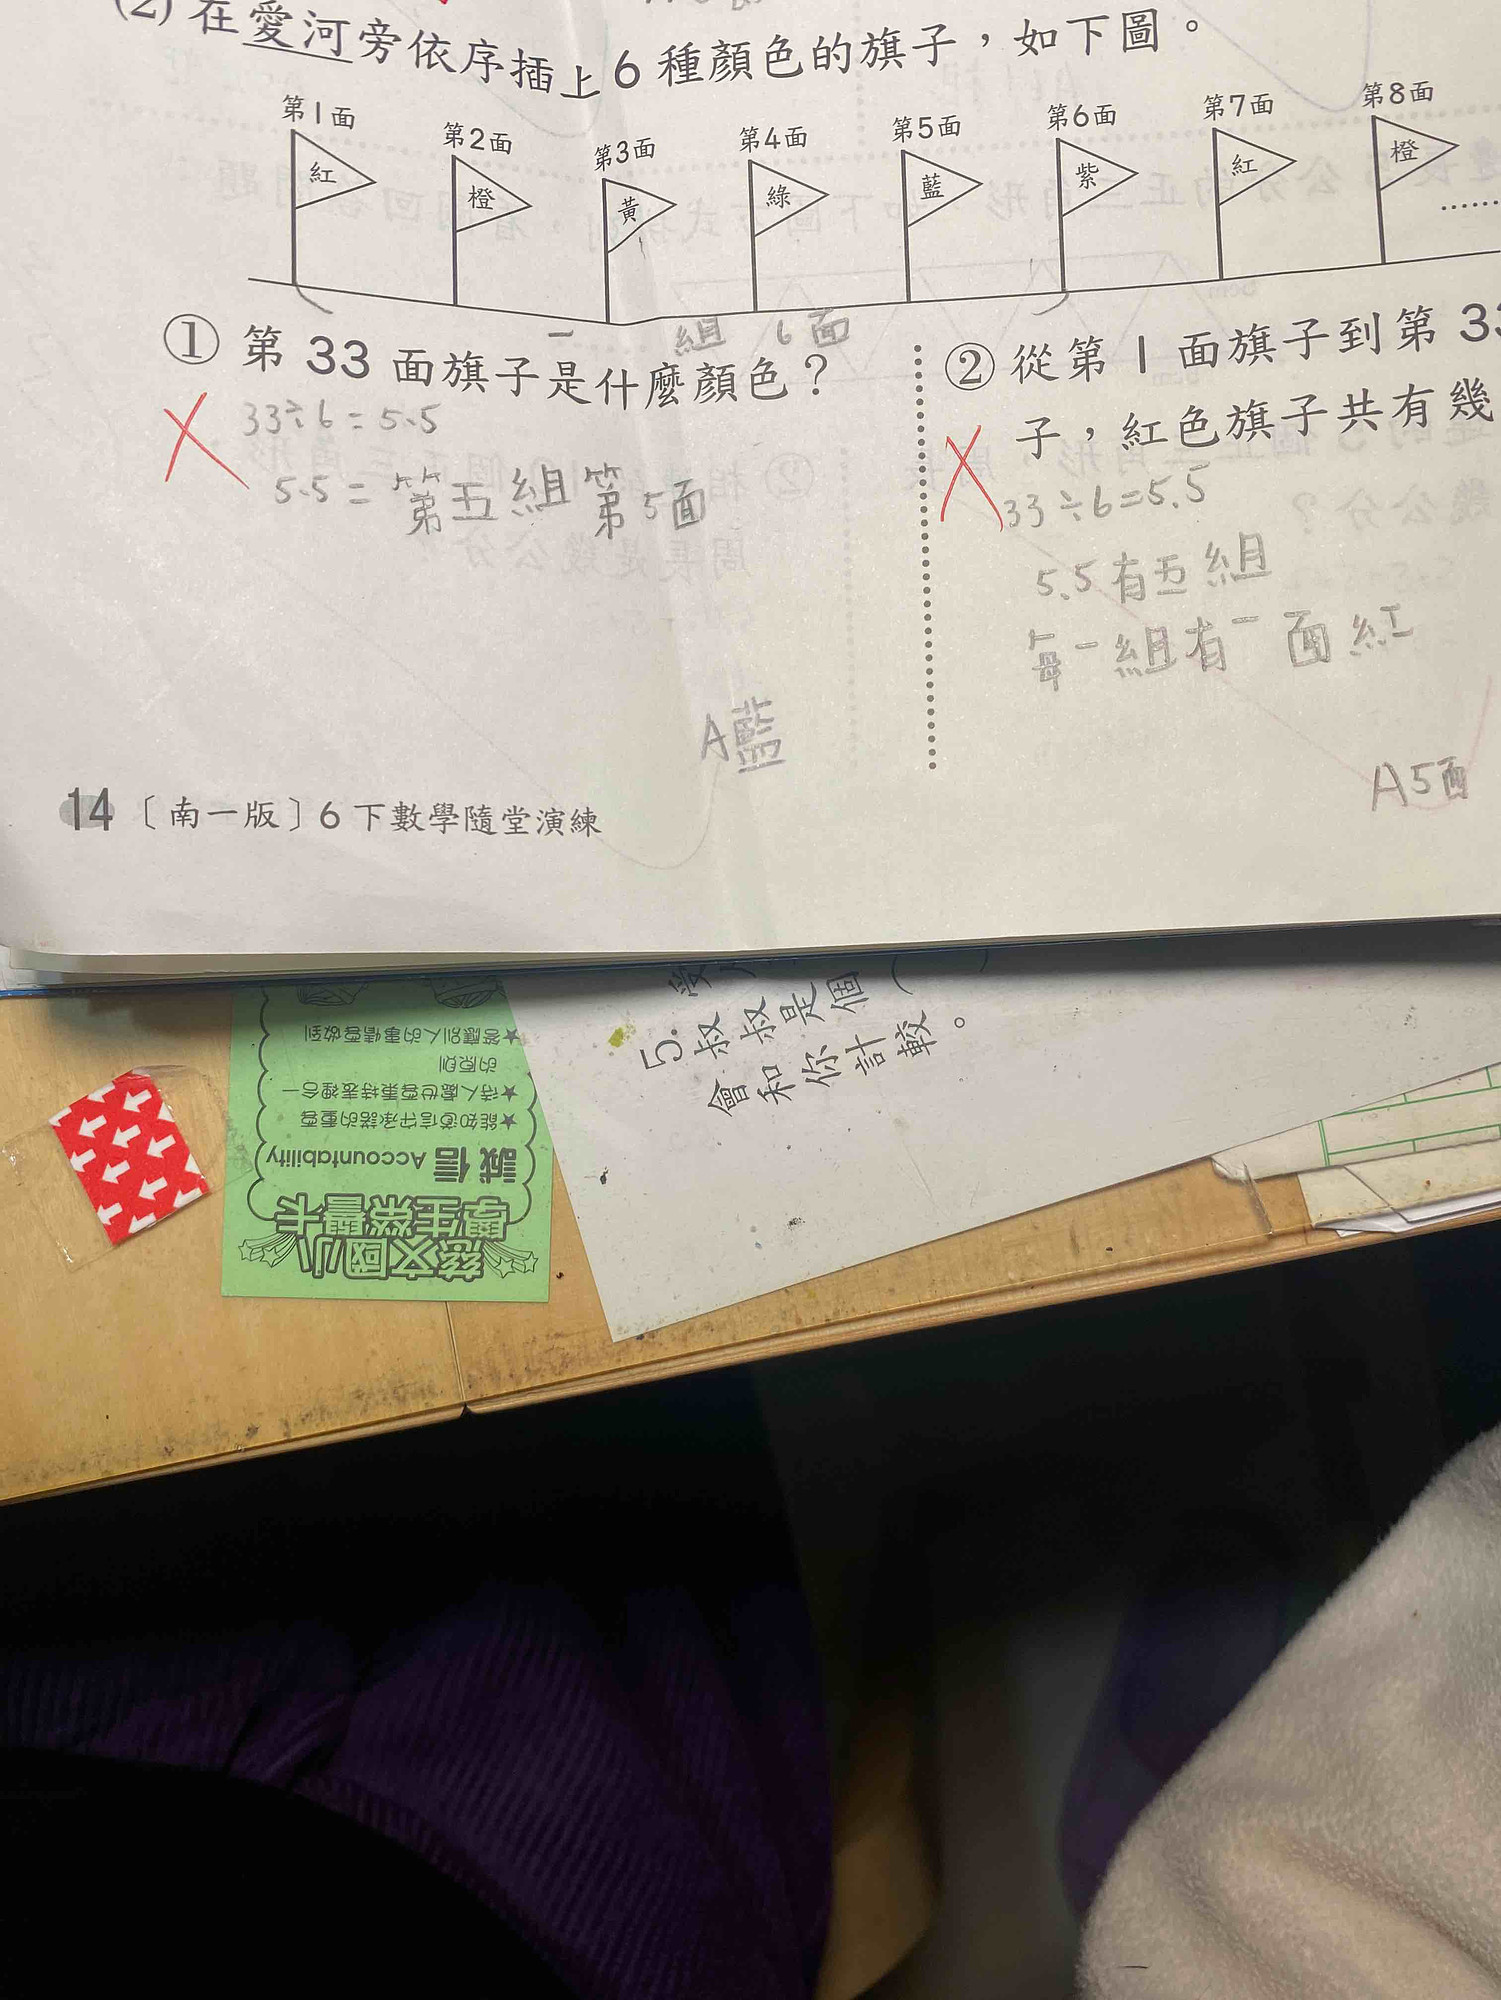 (2) 在愛河旁依序插上 6 種顏色的旗子，如下圖。
第1面 第2面 第3面 第4面 第5面 第6面 第7面 第8面
紅 橙 黃 綠 藍 紫 紅 橙 ……
一組 6面
① 第 33 面旗子是什麼顏色？
33÷6=5.5
5.5=第五組第5面
A藍
② 從第 1 面旗子到第 33
子，紅色旗子共有幾
33÷6=5.5
5.5有五組
每一組有一面紅
A5面
14〔南一版〕6 下數學隨堂演練
5. 叔叔是個
會和你計較。
慈文國小
學生榮譽卡
誠信 Accountability
★能知道信守承諾的重要
★待人處世要秉持表裡合一
的原則
★答應別人的事情要做到